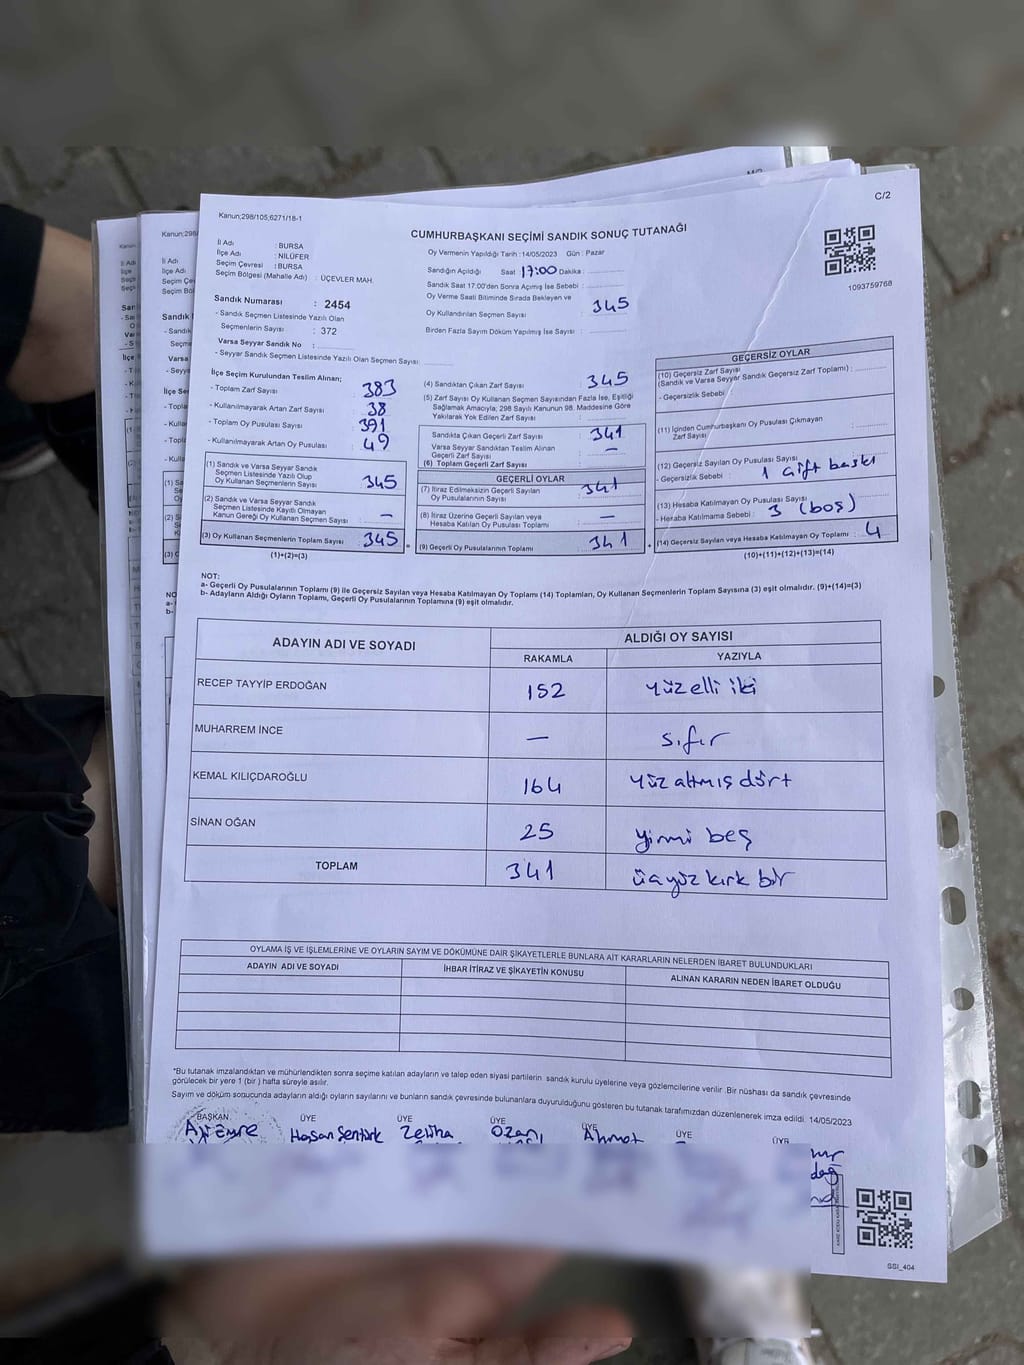 C/2
Kanun;298/105,6271/18-1
CUMHURBAŞKANI SEÇİMİ SANDIK SONUÇ TUTANAĞI
İl Adı : BURSA
İlçe Adı : NİLÜFER
Seçim Çevresi : BURSA
Seçim Bölgesi (Mahalle Adı) : ÜÇEVLER MAH.
Oy Vermenin Yapıldığı Tarih :14/05/2023 Gün : Pazar
Sandığın Açıldığı Saat 17:00 Dakika :
Sandık Saat 17.00'den Sonra Açımış İse Sebebi :
Oy Verme Saati Bitiminde Sırada Bekleyen ve
Oy Kullandırılan Seçmen Sayısı : 345
Birden Fazla Sayım Döküm Yapılmış İse Sayısı :
1093759768
Sandık Numarası : 2454
- Sandık Seçmen Listesinde Yazılı Olan
Seçmenlerin Sayısı : 372
Varsa Seyyar Sandık No :
- Seyyar Sandık Seçmen Listesinde Yazılı Olan Seçmen Sayısı:
İlçe Seçim Kurulundan Teslim Alınan;
- Toplam Zarf Sayısı : 383
- Kullanılmayarak Artan Zarf Sayısı : 38
- Toplam Oy Pusulası Sayısı : 391
- Kullanılmayarak Artan Oy Pusulası : 49
(1) Sandık ve Varsa Seyyar Sandık
Seçmen Listesinde Yazılı Olup
Oy Kullanan Seçmenlerin Sayısı : 345
(2) Sandık ve Varsa Seyyar Sandık
Seçmen Listesinde Kayıtlı Olmayan
Kanun Gereği Oy Kullanan Seçmen Sayısı : –
(3) Oy Kullanan Seçmenlerin Toplam Sayısı : 345
(1)+(2)=(3)
(4) Sandıktan Çıkan Zarf Sayısı : 345
(5) Zarf Sayısı Oy Kullanan Seçmen Sayısından Fazla İse, Eşitliği
Sağlamak Amacıyla; 298 Sayılı Kanunun 98. Maddesine Göre
Yakılarak Yok Edilen Zarf Sayısı :
Sandıkta Çıkan Geçerli Zarf Sayısı : 341
Varsa Seyyar Sandıktan Teslim Alınan
Geçerli Zarf Sayısı : –
(6) Toplam Geçerli Zarf Sayısı :
GEÇERLİ OYLAR
(7) İtiraz Edilmeksizin Geçerli Sayılan
Oy Pusulalarının Sayısı : 341
(8) İtiraz Üzerine Geçerli Sayılan veya
Hesaba Katılan Oy Pusulası Toplamı : –
(9) Geçerli Oy Pusulalarının Toplamı : 341
GEÇERSİZ OYLAR
(10) Geçersiz Zarf Sayısı
(Sandık ve Varsa Seyyar Sandık Geçersiz Zarf Toplamı) :
- Geçersizlik Sebebi :
(11) İçinden Cumhurbaşkanı Oy Pusulası Çıkmayan
Zarf Sayısı :
(12) Geçersiz Sayılan Oy Pusulası Sayısı :
- Geçersizlik Sebebi : 1 çift baskı
(13) Hesaba Katılmayan Oy Pusulası Sayısı :
- Hesaba Katılmama Sebebi : 3 (boş)
(14) Geçersiz Sayılan veya Hesaba Katılmayan Oy Toplamı : 4
(10)+(11)+(12)+(13)=(14)
NOT:
a- Geçerli Oy Pusulalarının Toplamı (9) ile Geçersiz Sayılan veya Hesaba Katılmayan Oy Toplamı (14) Toplamları, Oy Kullanan Seçmenlerin Toplam Sayısına (3) eşit olmalıdır. (9)+(14)=(3)
b- Adayların Aldığı Oyların Toplamı, Geçerli Oy Pusulalarının Toplamına (9) eşit olmalıdır.
ADAYIN ADI VE SOYADI ALDIĞI OY SAYISI
RAKAMLA YAZIYLA
RECEP TAYYİP ERDOĞAN 152 yüz elli iki
MUHARREM İNCE – sıfır
KEMAL KILIÇDAROĞLU 164 yüz altmış dört
SİNAN OĞAN 25 yirmi beş
TOPLAM 341 üçyüz kırk bir
OYLAMA İŞ VE İŞLEMLERİNE VE OYLARIN SAYIM VE DÖKÜMÜNE DAİR ŞİKAYETLERLE BUNLARA AİT KARARLARIN NELERDEN İBARET BULUNDUKLARI
ADAYIN ADI VE SOYADI İHBAR İTİRAZ VE ŞİKAYETİN KONUSU ALINAN KARARIN NEDEN İBARET OLDUĞU
*Bu tutanak imzalandıktan ve mühürlendikten sonra seçime katılan adayların ve talep eden siyasi partilerin sandık kurulu üyelerine veya gözlemcilerine verilir .Bir nüshası da sandık çevresinde
görülecek bir yere 1 (bir ) hafta süreyle asılır.
Sayım ve döküm sonucunda adayların aldığı oyların sayılarını ve bunların sandık çevresinde bulunanlara duyurulduğunu gösteren bu tutanak tarafımızdan düzenlenerek imza edildi. 14/05/2023
BAŞKAN ÜYE ÜYE ÜYE ÜYE ÜYE ÜYE
Ali Emre Hasan Şentürk Zeliha Ozan Ahmet
SSI_404